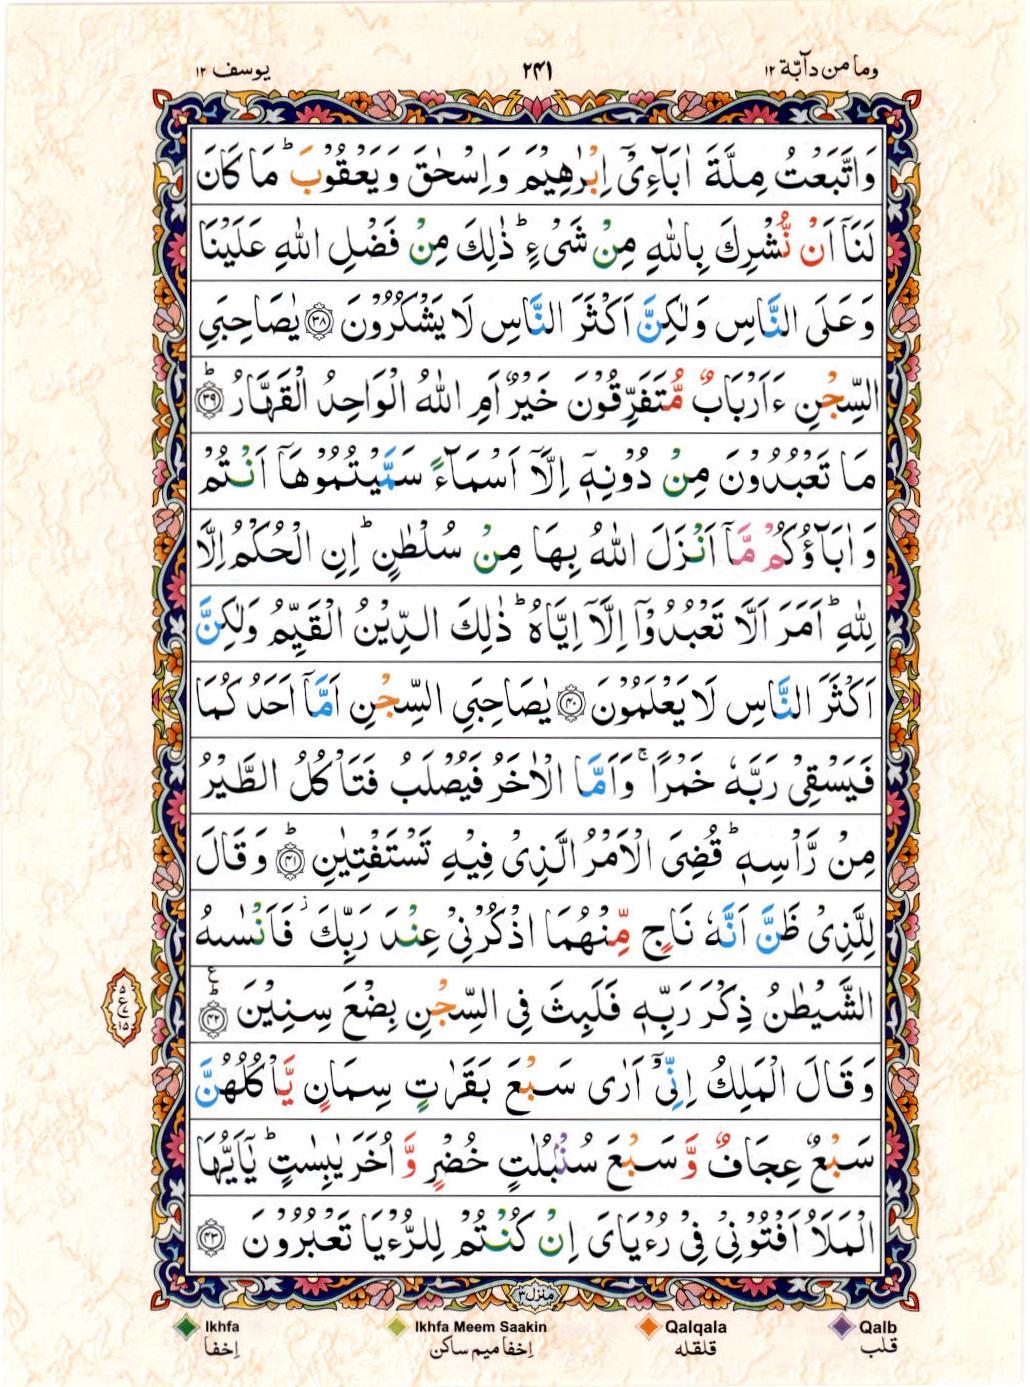 وما من دآبّة ۱۲
۲۴۱
یوسف ۱۲
وَاتَّبَعْتُ مِلَّةَ اٰبَآءِیْۤ اِبْرٰهِیْمَ وَاِسْحٰقَ وَیَعْقُوْبَ ؕ مَا كَانَ
لَنَاۤ اَنْ نُّشْرِكَ بِاللهِ مِنْ شَیْءٍ ؕ ذٰلِكَ مِنْ فَضْلِ اللهِ عَلَیْنَا
وَعَلَی النَّاسِ وَلٰكِنَّ اَكْثَرَ النَّاسِ لَا یَشْكُرُوْنَ ﴿۳۸﴾ یٰصَاحِبَیِ
السِّجْنِ ءَاَرْبَابٌ مُّتَفَرِّقُوْنَ خَیْرٌ اَمِ اللهُ الْوَاحِدُ الْقَهَّارُ ﴿۳۹﴾ؕ
مَا تَعْبُدُوْنَ مِنْ دُوْنِهٖۤ اِلَّاۤ اَسْمَآءً سَمَّیْتُمُوْهَاۤ اَنْتُمْ
وَاٰبَآؤُكُمْ مَّاۤ اَنْزَلَ اللهُ بِهَا مِنْ سُلْطٰنٍ ؕ اِنِ الْحُكْمُ اِلَّا
لِلّٰهِ ؕ اَمَرَ اَلَّا تَعْبُدُوْۤا اِلَّاۤ اِیَّاهُ ؕ ذٰلِكَ الدِّیْنُ الْقَیِّمُ وَلٰكِنَّ
اَكْثَرَ النَّاسِ لَا یَعْلَمُوْنَ ﴿۴۰﴾ یٰصَاحِبَیِ السِّجْنِ اَمَّاۤ اَحَدُكُمَا
فَیَسْقِیْ رَبَّهٗ خَمْرًا ۚ وَاَمَّا الْاٰخَرُ فَیُصْلَبُ فَتَاْكُلُ الطَّیْرُ
مِنْ رَّاْسِهٖ ؕ قُضِیَ الْاَمْرُ الَّذِیْ فِیْهِ تَسْتَفْتِیٰنِ ﴿۴۱﴾ؕ وَقَالَ
لِلَّذِیْ ظَنَّ اَنَّهٗ نَاجٍ مِّنْهُمَا اذْكُرْنِیْ عِنْدَ رَبِّكَ ؗ فَاَنْسٰىهُ
الشَّیْطٰنُ ذِكْرَ رَبِّهٖ فَلَبِثَ فِی السِّجْنِ بِضْعَ سِنِیْنَ ﴿۴۲﴾ؕ ع
۵
ع
۷
۱۵
وَقَالَ الْمَلِكُ اِنِّیْۤ اَرٰی سَبْعَ بَقَرٰتٍ سِمَانٍ یَّاْكُلُهُنَّ
سَبْعٌ عِجَافٌ وَّسَبْعَ سُنْۢبُلٰتٍ خُضْرٍ وَّاُخَرَ یٰبِسٰتٍ ؕ یٰۤاَیُّهَا
الْمَلَاُ اَفْتُوْنِیْ فِیْ رُءْیَایَ اِنْ كُنْتُمْ لِلرُّءْیَا تَعْبُرُوْنَ ﴿۴۳﴾
منزل ۳
Ikhfa
Ikhfa Meem Saakin
Qalqala
Qalb
اِخفا
اِخفا میم ساکن
قلقله
قلب